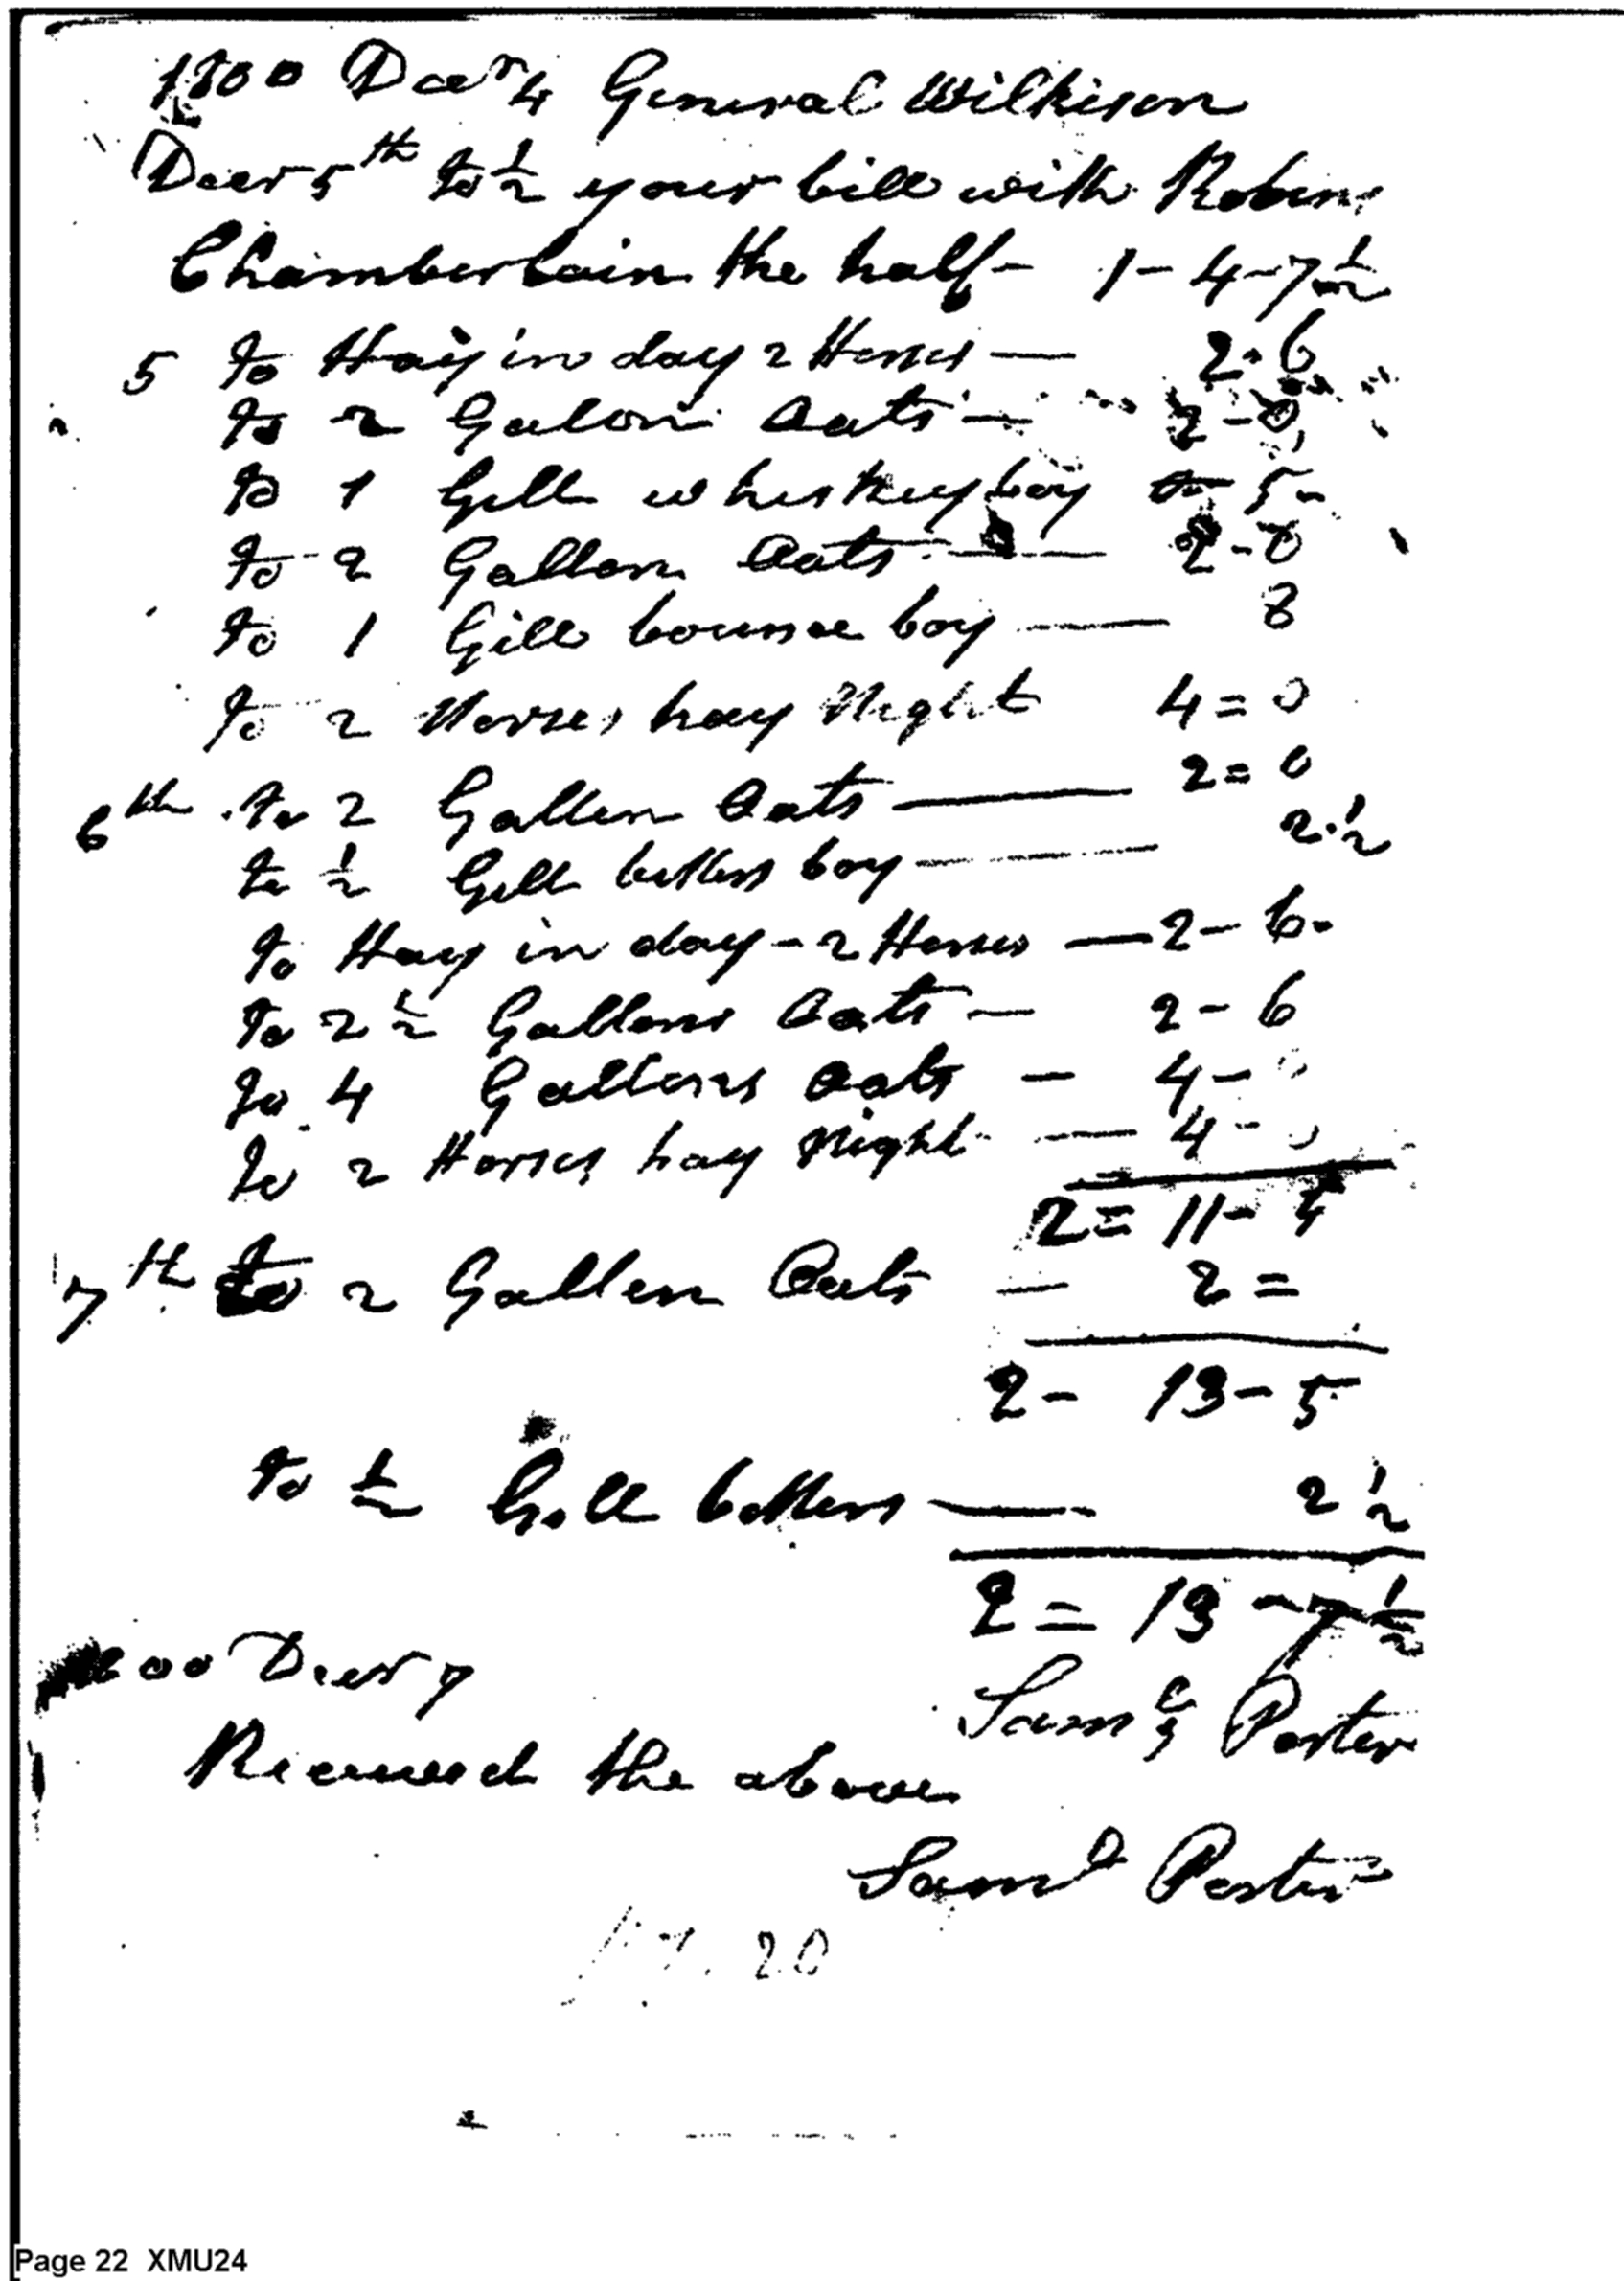 1800 Decr 4 General Wilkison
Decr 5th to ½ your bill with Robin
Chamberlain the half - 1 - 4 - 7 ½
5 to Hay in day 2 Horses — 2 - 6
to 2 Galon Oats — 2 - 0
to 1 Gill whiskey boy 5 -
to 2 Gallon Oats — 2 - 0
to 1 Gill bounce boy — 8
to 2 Horses hay Night 4 = 0
6th to 2 Gallen Oats — 2 = 0
to ½ Gill bitters boy — 2 ½
to Hay in day - 2 Horses — 2 - 6 -
to 2 ½ Gallons Oats — 2 - 6
to 4 Gallons Oats — 4 - 0
to 2 Horses hay Night — 4 - 0
2 = 11 - 5
7th to 2 Gallen Oats — 2 =
2 - 13 - 5
to ½ Gill bitters — 2 ½
2 = 13 - 7 ½
Saml Porter
00 Decr 7
Received the above
Saml Porter
20
Page 22 XMU24